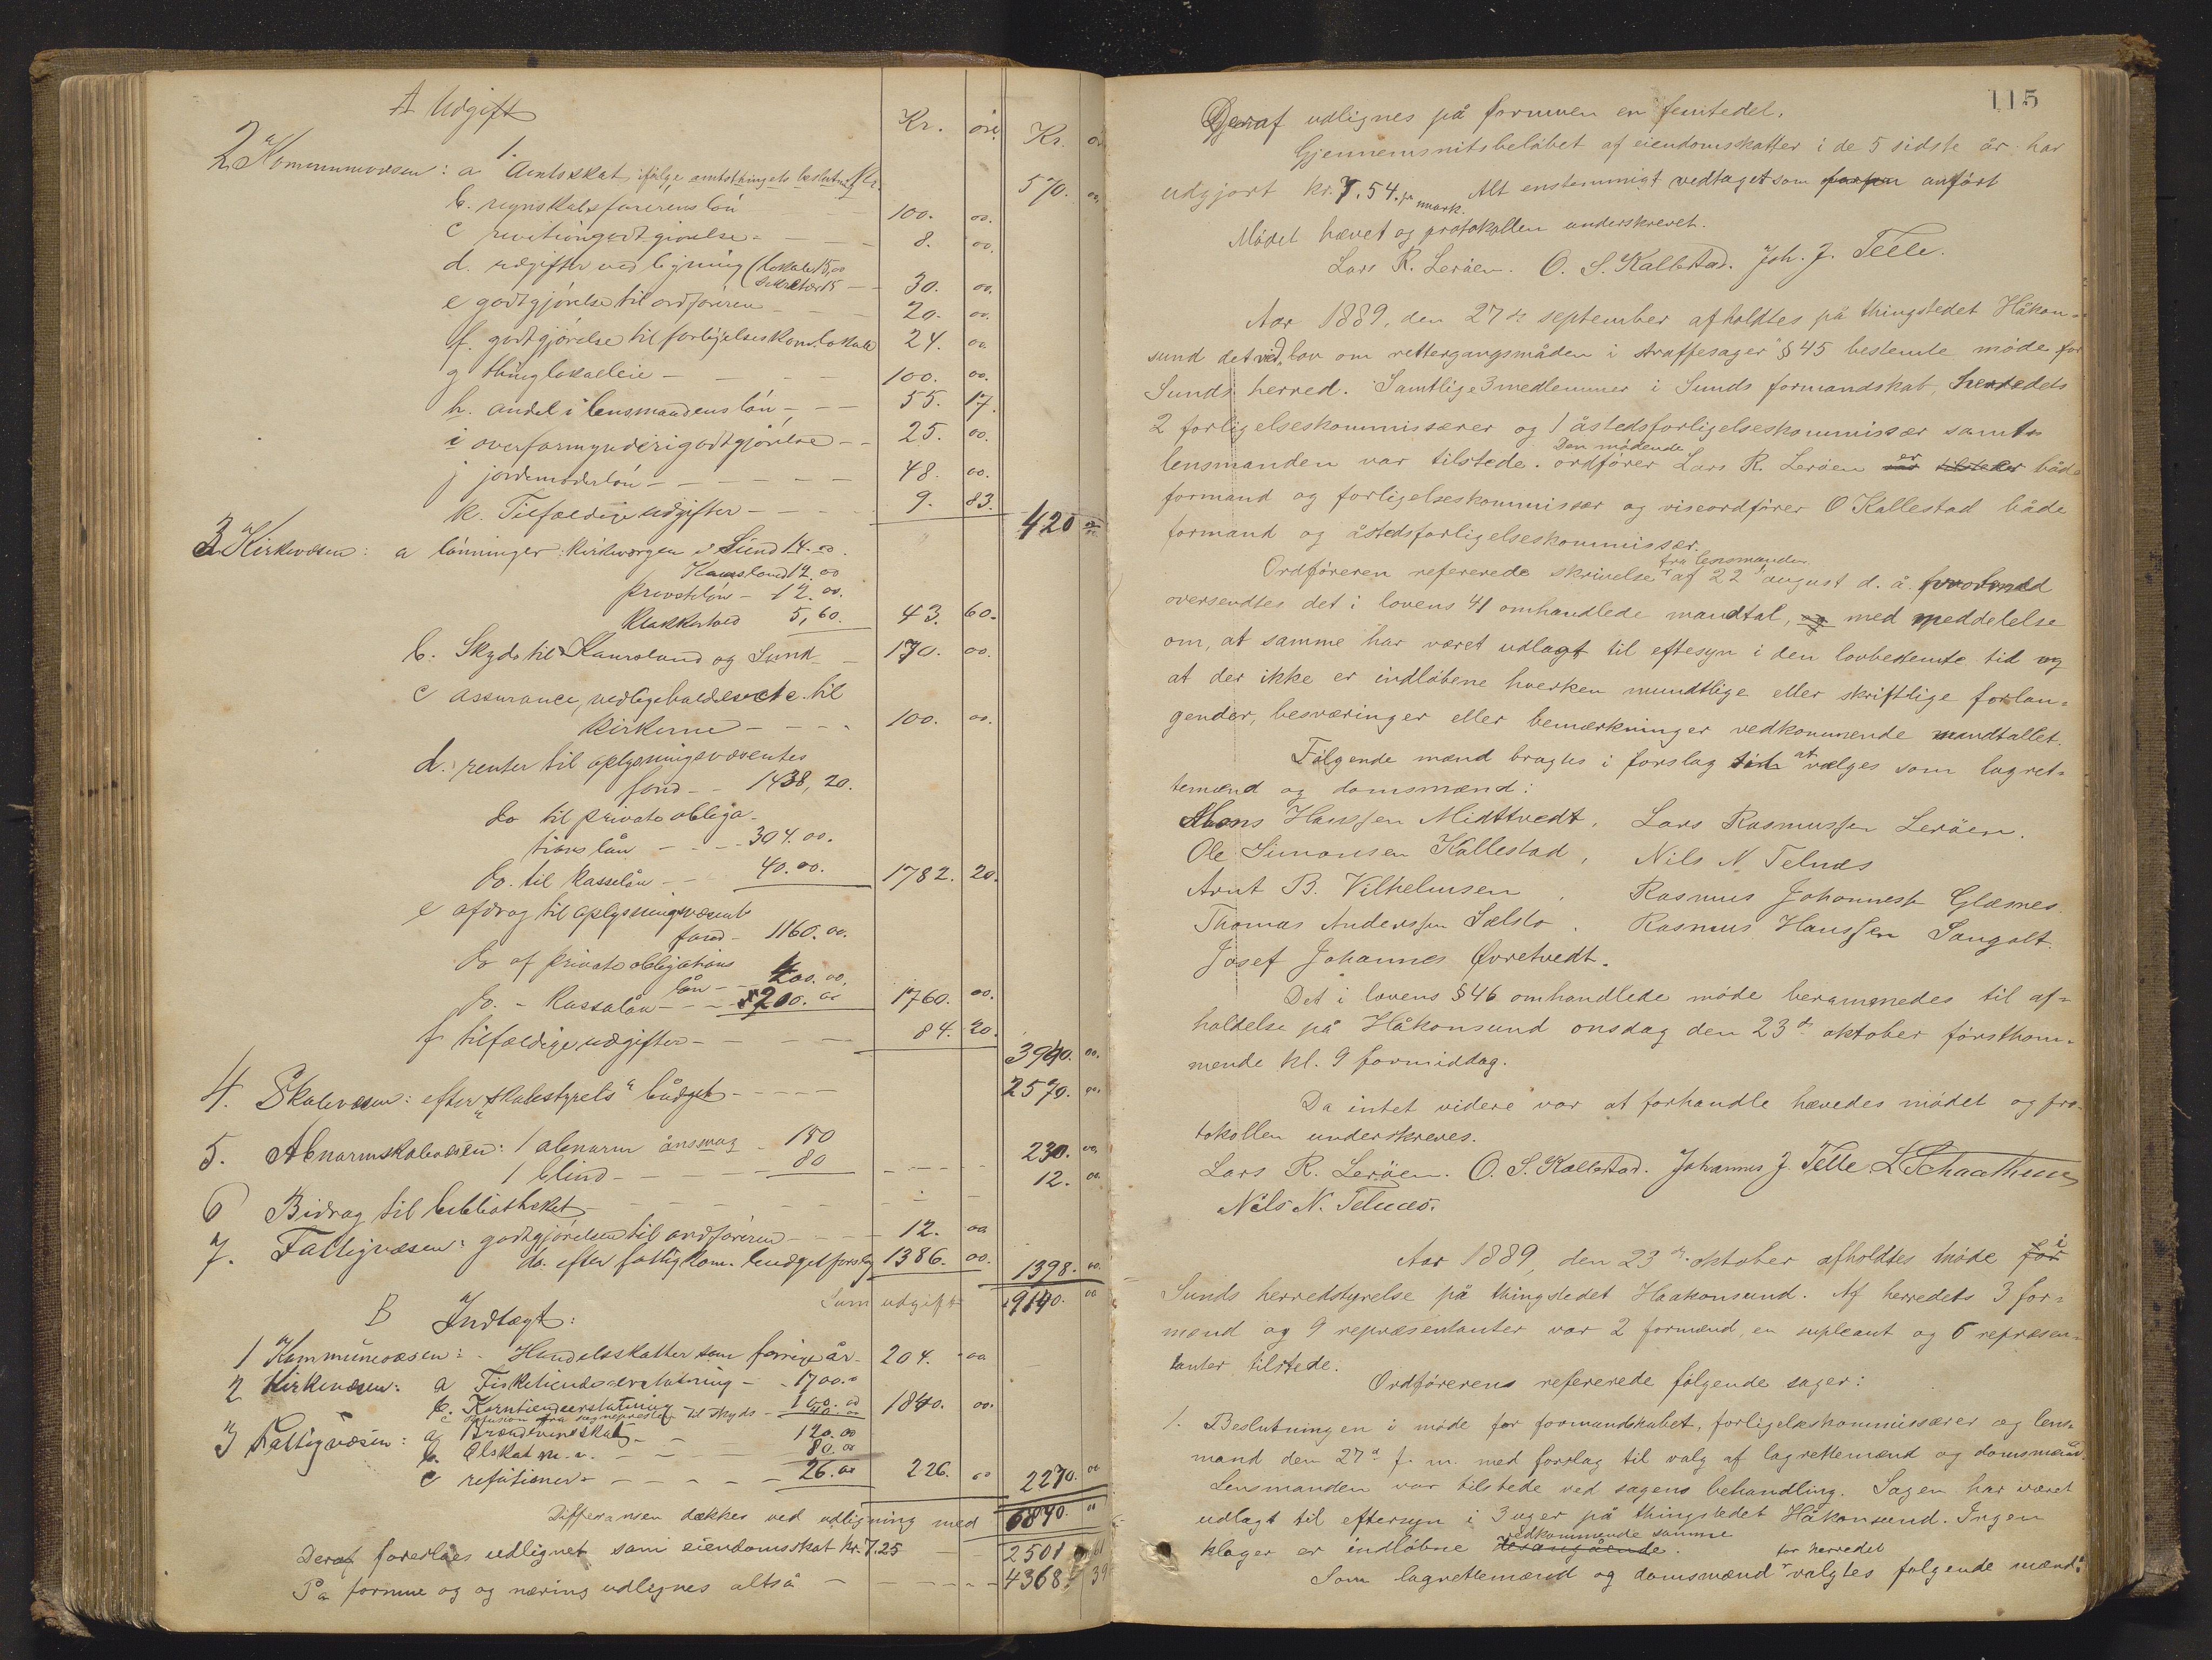 A Udgift
Kr. øre Kr. ør
1.
2 Kommunevæsen: a Amtsskat, ifølge amtsthingets beslutning Kr. 570. 00
b. regnskabsførerens løn 100. 00.
c revisiongodtgjørelse - 8. 00.
d. udgifter ved ligning (lokale 15,00
sekretær 15 — 30. 00.
e godtgjørelse til ordføreren - 20. 00.
f. godtgjørelse til forligelseskom. lokale 24. 00
g thinglokalleie — 100. 00.
h. andel i lensmandens løn - 55. 17.
i overformynderigodtgjørelse - 25. 00.
j jordemoderløn - 48. 00.
k. Tilfældige udgifter - 9. 83. 420 00
3 Kirkevæsen: a lønninger: kirkeværgen i Sund 14.00.
Kausland 12.00
prestløn - 12.00.
Klokkertold 5,60. 43. 60.
b. Skyds til Kausland og Sund - 170. 00.
c assurance, vedligeholdelse etc. til
kirkerne - 100. 00.
d. renter til oplysningsvæsentes
fond - 1438,20.
do til private obliga-
tions lån - 304.00.
do. til kasselån - 40.00. 1782. 20.
e afdrag til oplysningsvæsents
fond - 1160.00.
do af private obligations
lån - 400.00.
do. - Kassalån - 200.00 1760. 00.
f tilfældige udgifter - 84. 20. 3940. 00.
4. Skolevæsen: efter "skolestyrets" budget - 2570. 00.
5. Abnormskolevæsen: 1 abnorm åndssvag - 150
1 blind - 80 230. 00
6 Bidrag til bibliotheket - 12. 00.
7. Fattigvæsen: godtgjørelsen til ordføreren - 12. 00
do. efter fattigkom. budgetforslag 1386. 00. 1398. 00
Sum udgift 9140. 00
B Indtægt:
1 Kommunevæsen: - Handelsskatter som forrige år - 204. 00
2 Kirkevæsen: a Fisketiendeerstatning - 1700.0
b. Korntiendeerstatning - 100.00
c Refusion fra sognepresten til skyds - 40.00 1840. 00.
3 Fattigvæsen: a Brændevinsskat - 120.00
b. Ølskat m. v. - 80.00
c refusioner - 26.00 226. 00 2270. 00
Differansen dækkes ved udligning med 6870. 00
Deraf foreslaes udlignet som eiendomsskat kr. 7.25 — 2501 61
På formue og og næring udlignes altså — 4368. 39
115
Deraf udlignes på formuen en femtedel.
Gjennemsnitsbeløbet af eiendomsskatter i de 5 sidste år har
udgjort kr. 7.54. pr mark. Alt enstemmigt vedtaget som anført
Mødet hævet og protokollen underskrevet.
Lars R. Lerøen. O. S. Kallestad. Joh. J. Telle.
Aar 1889, den 27de september afholdtes på thingstedet Håkon-
sund det ved "lov om rettergangsmåden i straffesager" § 45 bestemte møde for
Sunds herred. Samtlige 3 medlemmer i Sunds formandskab, herredets
2 forligelseskommissærer og 1 åstedsforligelseskommissær samt
lensmanden var tilstede. Den mødende ordfører Lars R. Lerøen er både
formand og forligelseskommissær og viseordfører O Kallestad både
formand og åstedsforligelseskommissær.
Ordføreren refererede skrivelse fra lensmanden af 22 august d. å. hvormed
oversendtes det i lovens 41 omhandlede mandtal, med meddelelse
om, at samme har været udlagt til eftesyn i den lovbestemte tid og
at der ikke er indløbene hverken mundtlige eller skriftlige forlan-
gender, besværinger eller bemærkninger vedkommende mandtallet.
Følgende mænd bragtes i forslag at vælges som lagret-
temænd og domsmænd:
Mons Hanssen Midttvedt, Lars Rasmussen Lerøen.
Ole Simonsen Kallestad, Nils N. Telnæs
Arnt B. Vilhelmsen, Rasmus Johannesen Glæsnes.
Thomas Anderssen Sælstø. Rasmus Hanssen Sangolt.
Josef Johannes Øvretvedt.
Det i lovens § 46 omhandlede møde berammedes til af-
holdelse på Håkonsund onsdag den 23de oktober førstkom-
mende kl. 9 formiddag.
Da intet videre var at forhandle hævedes mødet og pro-
tokollen underskreves.
Lars R. Lerøen. O. S. Kallestad. Johannes J. Telle. L Schaathun
Nils N. Telnæs.
Aar 1889, den 23de oktober afholdtes møde i
Sunds herredstyrelse på thingstedet Haakonsund. Af herredets 3 for-
mænd og 9 repræsentanter var 2 formænd, en supleant og 6 repræsen-
tanter tilstede.
Ordførerens refererede følgende sager:
1. Beslutningen i møde for formandskabet, forligelseskommissærer og lens-
mand den 27de f. m. med forslag til valg af lagrettemænd og domsmænd.
Lensmanden var tilstede ved sagens behandling. Sagen har været
udlagt til eftersyn i 3 uger på thingstedet Håkonsund. Ingen
klager er indløbne vedkommende samme.
Som lagrettemænd og domsmænd for herredet valgtes følgende mænd: